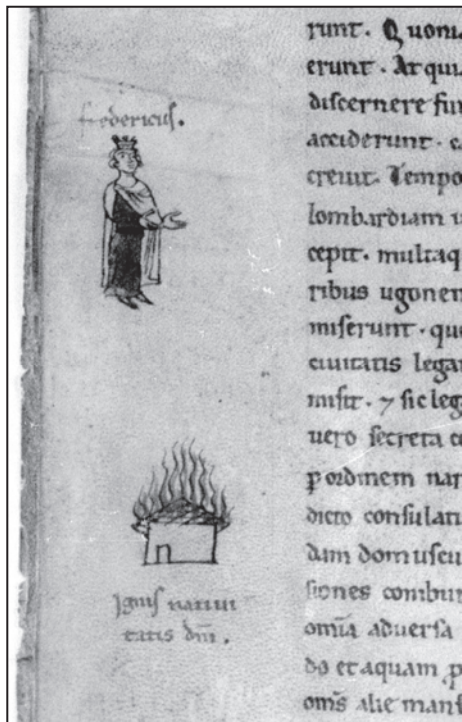 fredericus.
ignis natiui
tatis dni.
runt. Quoni
erunt. At qui
discernere fu
acciderunt. c
creuit. Tempo
lombardiam u
cepit. multaq
ribus ugonem
miserunt. que
ciuitatis lega
misit. ⁊ sic leg
uero secreta c
p ordinem nar
dicto consulatu
dam domuscu
siones combur
omia aduersa
do et aquam p
oms alie mans